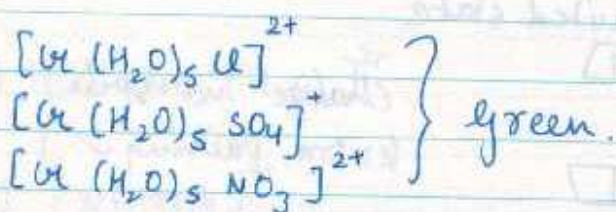 [Cr (H₂O)₅ Cl]²⁺
[Cr (H₂O)₅ SO₄]⁺
[Cr (H₂O)₅ NO₃]²⁺ } green.